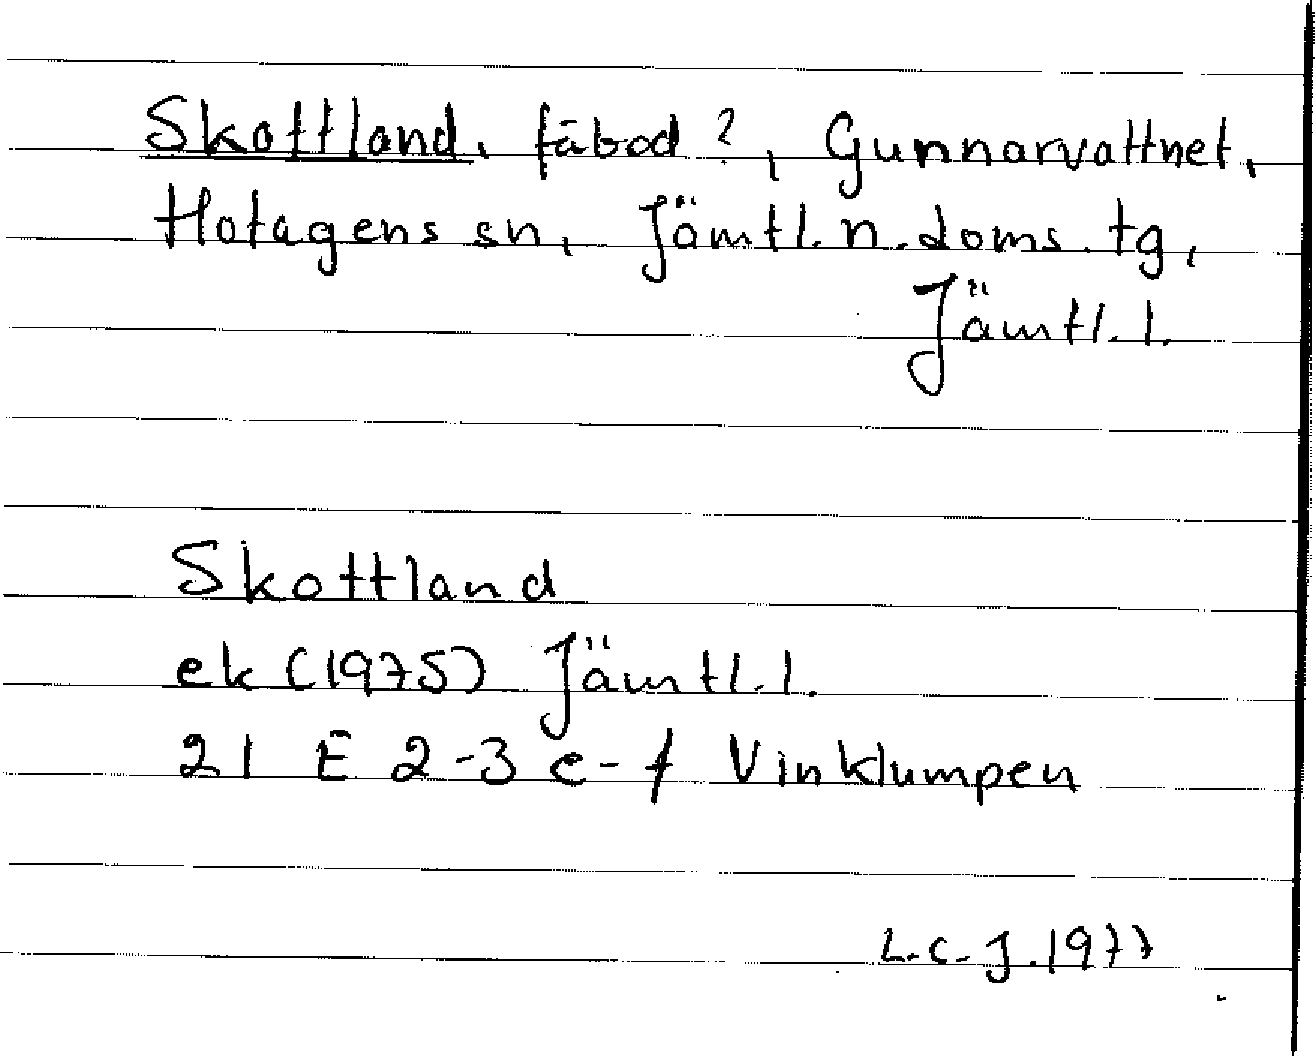 Skottland, fäbod?, Gunnarvattnet,
Hotagens sn, Jämtl. n. doms. tg,
Jämtl. l.
Skottland
ek (1975) Jämtl. l.
21 E 2-3 e-f Vinklumpen
L.C.J. 1977